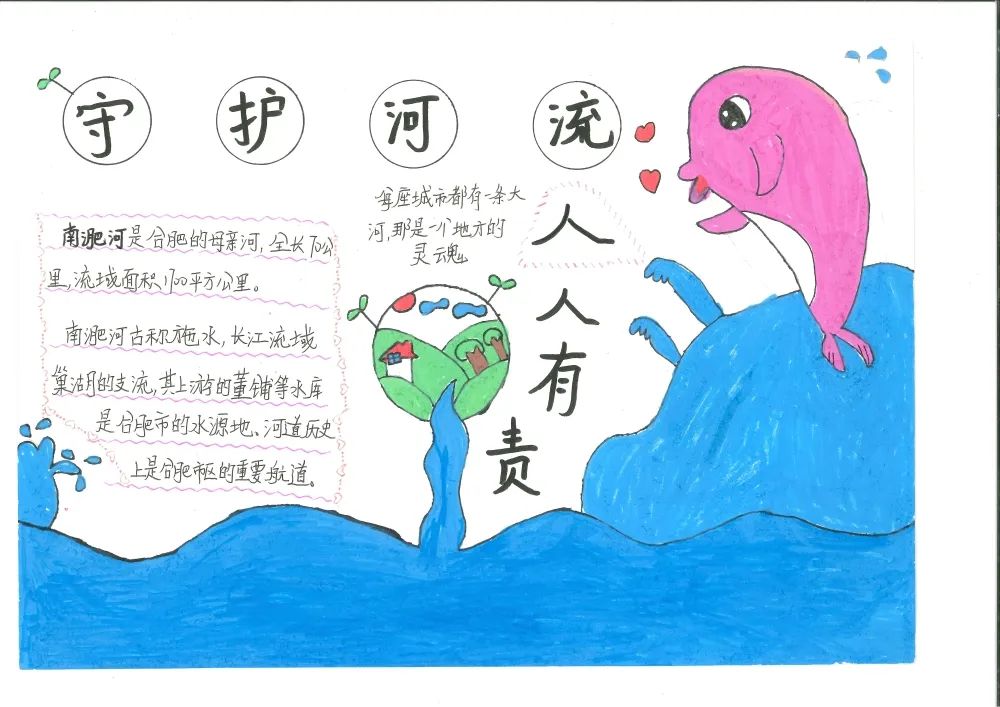 守护河流
人人有责
每座城市都有一条大
河,那是一个地方的
灵魂
南淝河是合肥的母亲河,全长70公
里,流域面积1700平方公里。
南淝河古称施水,长江流域
巢湖的支流,其上游的董铺等水库
是合肥市的水源地、河道历史
上是合肥市区的重要航道。